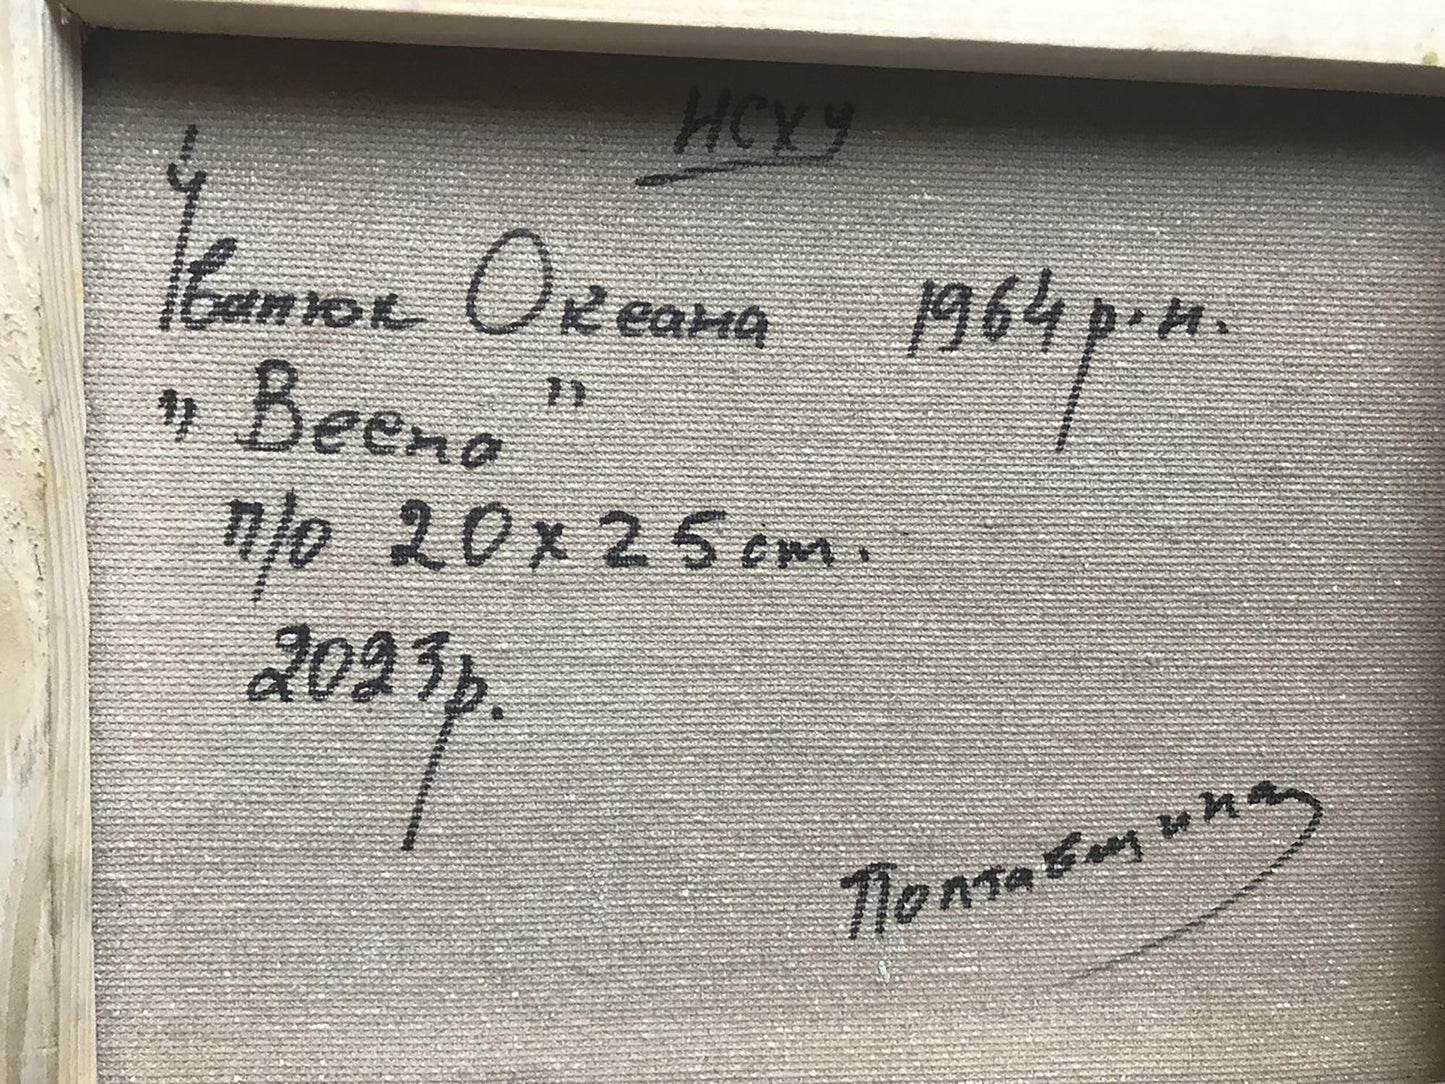 НСХУ
Іванюк Океана 1964 р.н.
„Весна”
п/о 20 х 25 см.
2023р.
Полтавщина